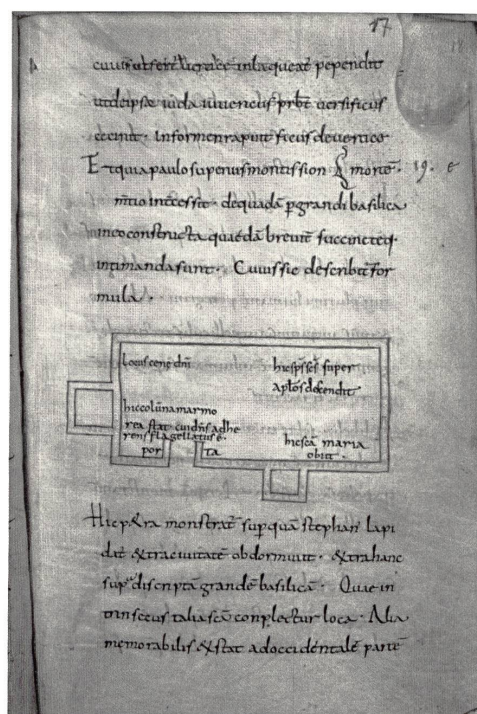 17
cuius ut fert' in laqueat' pependit
ut de ipso iuda iuuencus prbt uersificus
cecinit . informem rapuit ficus de uertice
Et quia paulo superius montis sion § mortē . 19. e
mtio incessit . de quadā pgrandi basilica
in eo constructa quaedā breuit succincteq;
intimanda sunt . Cuius sic describit for
mula .
locus cene dni
hic sps scs super
aptos descendit
hic colūna marmo
rea stat cui dns adhe
rens flagellatus ē .
hic scā maria
obiit .
por ta
Hic petra monstrat supquā stephan' lapi
dat' extra ciuitatē obdormiuit . extra hanc
sup discriptā grandē basilicā . Quae in
trinsecus talia scā conplectur loca . Alia
memorabilis exstat ad occidentalē partē